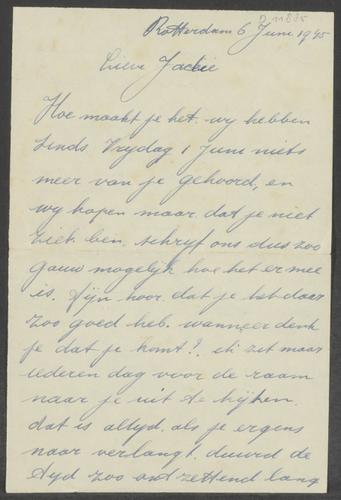 D 11885
Rotterdam 6 Juni 1945
Lieve Jackie
Hoe maakt je het. wy hebben
Sinds Vrydag 1 Juni niets
meer van je gehoord, en
wy hopen maar dat je niet
ziek ben, schryf ons dus zoo
gauw mogelyk hoe het er mee
is. Fyn hoor dat je het daar
zoo goed heb. wanneer denk
je dat je komt?. ik zit maar
iederen dag voor de raam
naar je uit te kyken.
dat is altyd. als je ergens
naar verlangt. duurd de
tyd zoo ontzettend lang